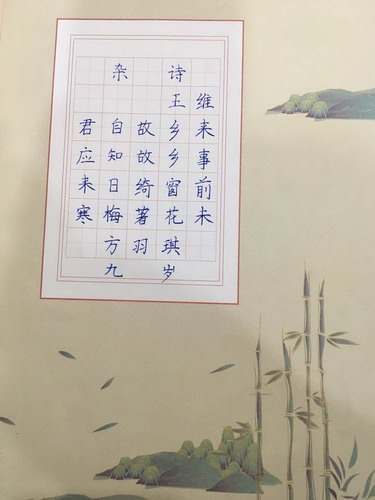 杂 诗
王 维
君自故乡来
应知故乡事
来日绮窗前
寒梅著花未
方羽琪
九 岁